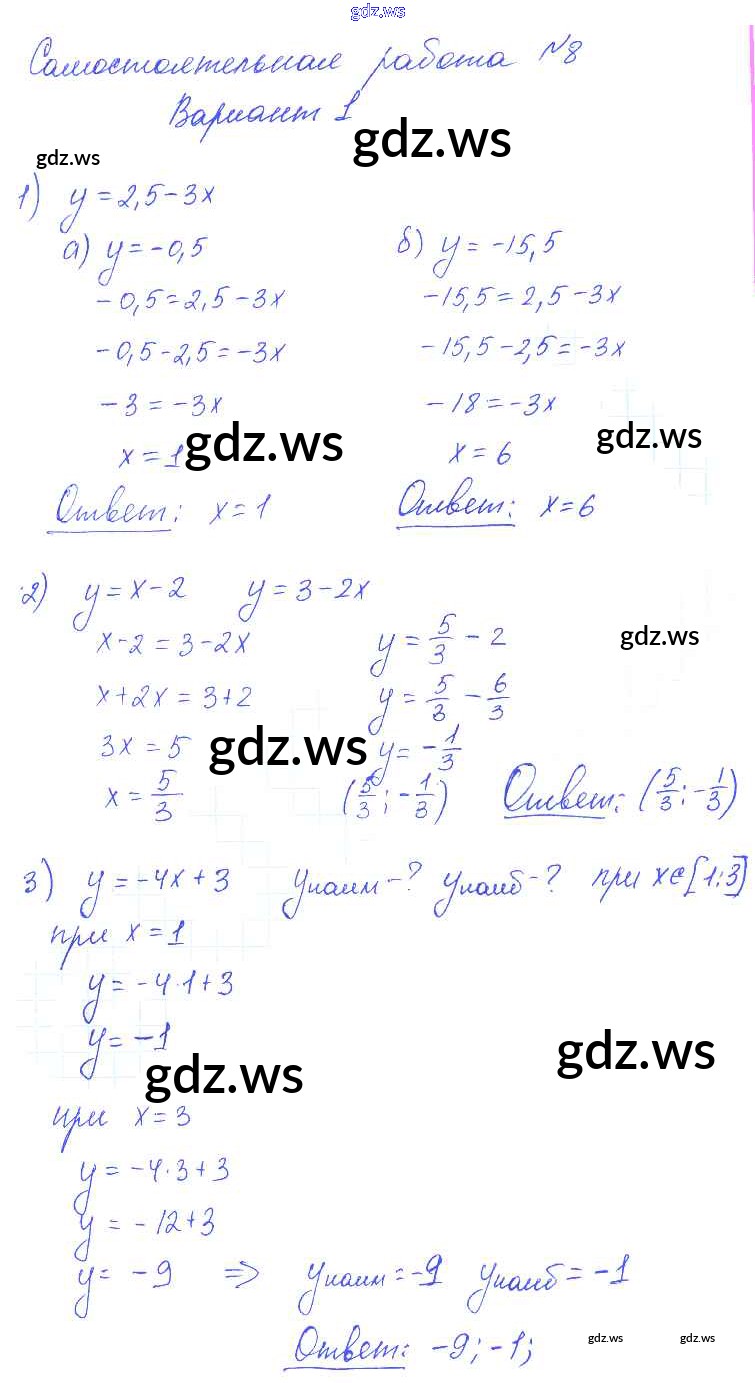 gdz.ws
Самостоятельная работа №8
Вариант 1
gdz.ws
gdz.ws
1) y = 2,5 - 3x
а) y = -0,5
-0,5 = 2,5 - 3x
-0,5 - 2,5 = -3x
-3 = -3x
x = 1
gdz.ws
Ответ: x = 1
б) y = -15,5
-15,5 = 2,5 - 3x
-15,5 - 2,5 = -3x
-18 = -3x
gdz.ws
x = 6
Ответ: x = 6
2) y = x - 2 y = 3 - 2x
x - 2 = 3 - 2x
x + 2x = 3 + 2
3x = 5
gdz.ws
x = 5/3
y = 5/3 - 2
gdz.ws
y = 5/3 - 6/3
y = -1/3
(5/3; -1/3) Ответ: (5/3; -1/3)
3) y = -4x + 3 yнаим - ? yнаиб - ? при x∈[1;3]
при x = 1
y = -4·1 + 3
y = -1
gdz.ws
gdz.ws
при x = 3
y = -4·3 + 3
y = -12 + 3
y = -9 ⇒ yнаим = -9 yнаиб = -1
Ответ: -9; -1;
gdz.ws
gdz.ws